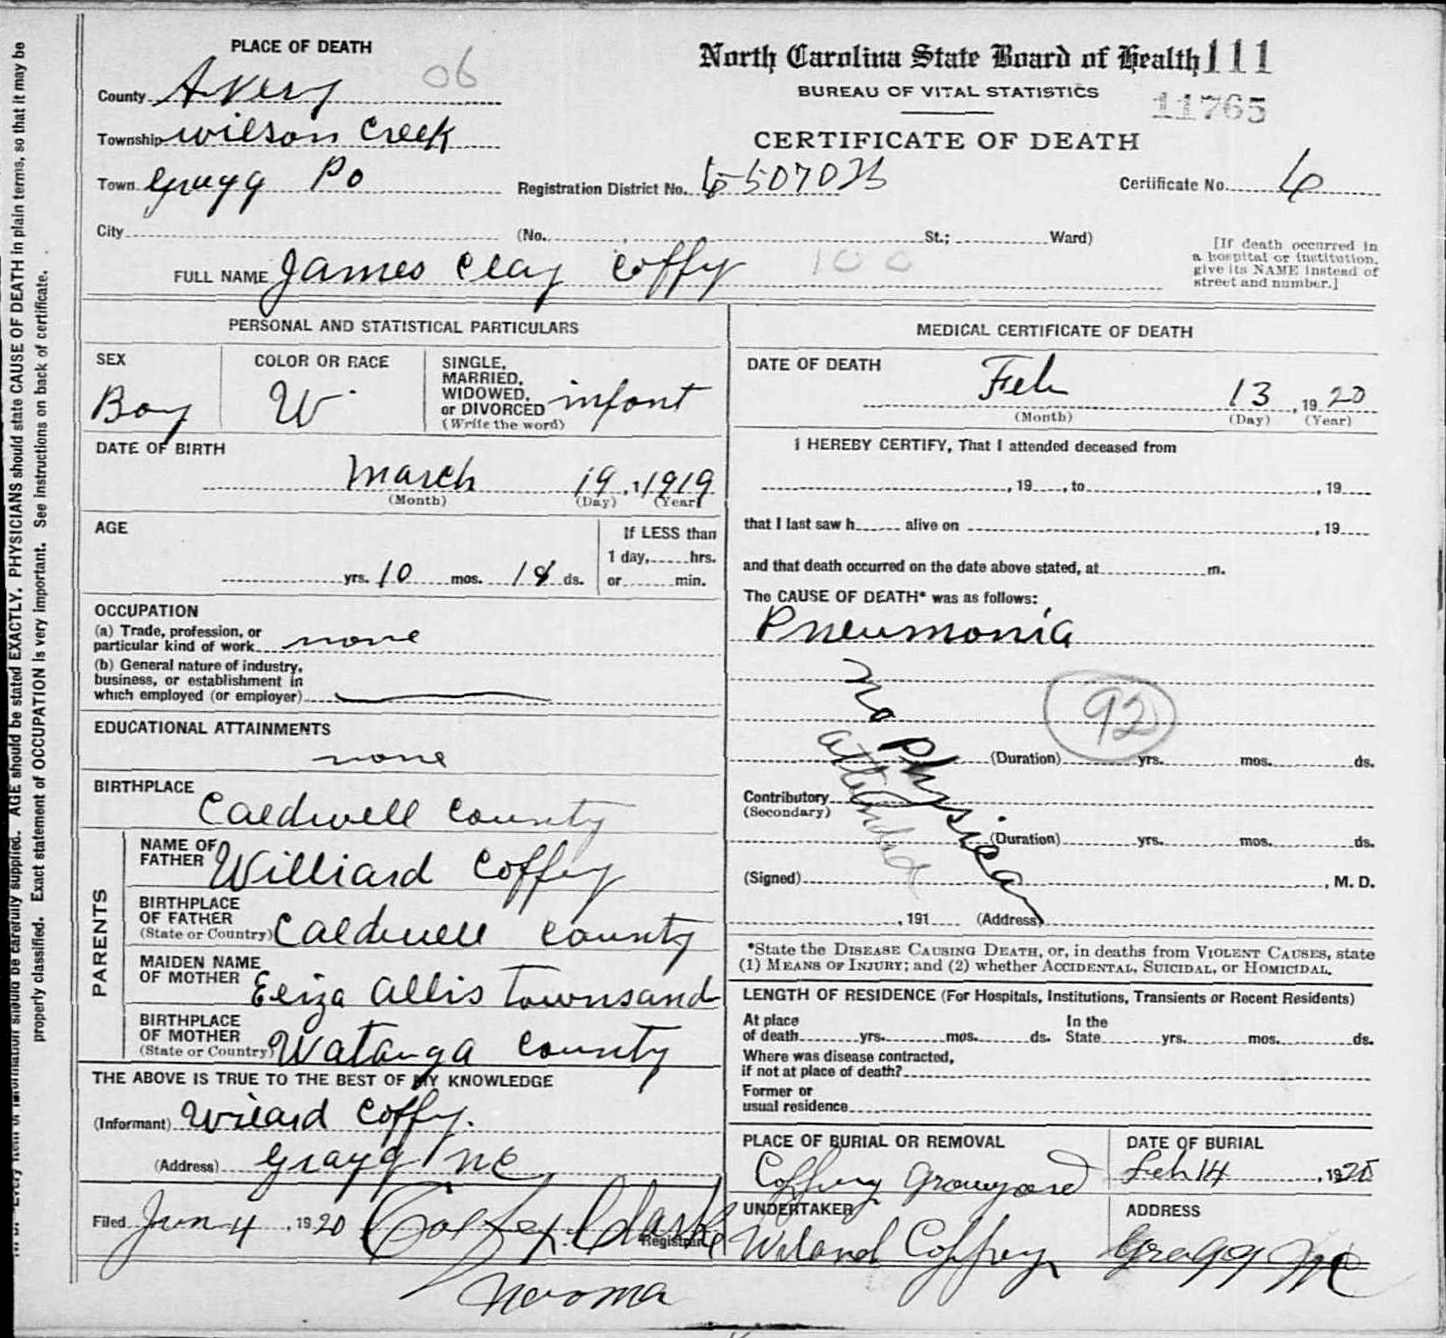 PLACE OF DEATH
06
County Avery
Township Wilson Creek
Town Gragg Po
City
North Carolina State Board of Health 111
BUREAU OF VITAL STATISTICS
11765
CERTIFICATE OF DEATH
Registration District No.
Certificate No. 6
(No. , St.; Ward)
[If death occurred in
a hospital or institution,
give its NAME instead of
street and number.]
FULL NAME James Clay Coffy 100
PERSONAL AND STATISTICAL PARTICULARS
SEX
Boy
COLOR OR RACE
W
SINGLE,
MARRIED,
WIDOWED,
or DIVORCED infant
(Write the word)
DATE OF BIRTH
March 19, 1919
(Month) (Day) (Year)
AGE
yrs. 10 mos. 18 ds.
If LESS than
1 day, hrs.
or min.
OCCUPATION
(a) Trade, profession, or
particular kind of work none
(b) General nature of industry,
business, or establishment in
which employed (or employer)
EDUCATIONAL ATTAINMENTS
none
BIRTHPLACE
Caldwell County
PARENTS
NAME OF
FATHER Williard Coffey
BIRTHPLACE
OF FATHER
(State or Country) Caldwell County
MAIDEN NAME
OF MOTHER Eliza Allis Townsand
BIRTHPLACE
OF MOTHER
(State or Country) Watauga County
THE ABOVE IS TRUE TO THE BEST OF MY KNOWLEDGE
(Informant) Willard Coffy.
(Address) Gragg NC
Filed Jun 4, 1920
Registrar
MEDICAL CERTIFICATE OF DEATH
DATE OF DEATH
Feb 13, 1920
(Month) (Day) (Year)
I HEREBY CERTIFY, That I attended deceased from
, 19 , to , 19
that I last saw h alive on , 19
and that death occurred on the date above stated, at m.
The CAUSE OF DEATH* was as follows:
Pneumonia
no Physican
attended
92
(Duration) yrs. mos. ds.
Contributory
(Secondary)
(Duration) yrs. mos. ds.
(Signed) , M. D.
, 191 (Address)
*State the DISEASE CAUSING DEATH, or, in deaths from VIOLENT CAUSES, state
(1) MEANS OF INJURY; and (2) whether ACCIDENTAL, SUICIDAL, or HOMICIDAL.
LENGTH OF RESIDENCE (For Hospitals, Institutions, Transients or Recent Residents)
At place
of death yrs. mos. ds.
In the
State yrs. mos. ds.
Where was disease contracted,
if not at place of death?
Former or
usual residence
PLACE OF BURIAL OR REMOVAL
Coffey Graveyard
DATE OF BURIAL
Feb 14, 1920
UNDERTAKER
Coffey
ADDRESS
Gragg NC
AGE should be stated EXACTLY. PHYSICIANS should state CAUSE OF DEATH in plain terms, so that it may be
properly classified. Exact statement of OCCUPATION is very important. See instructions on back of certificate.